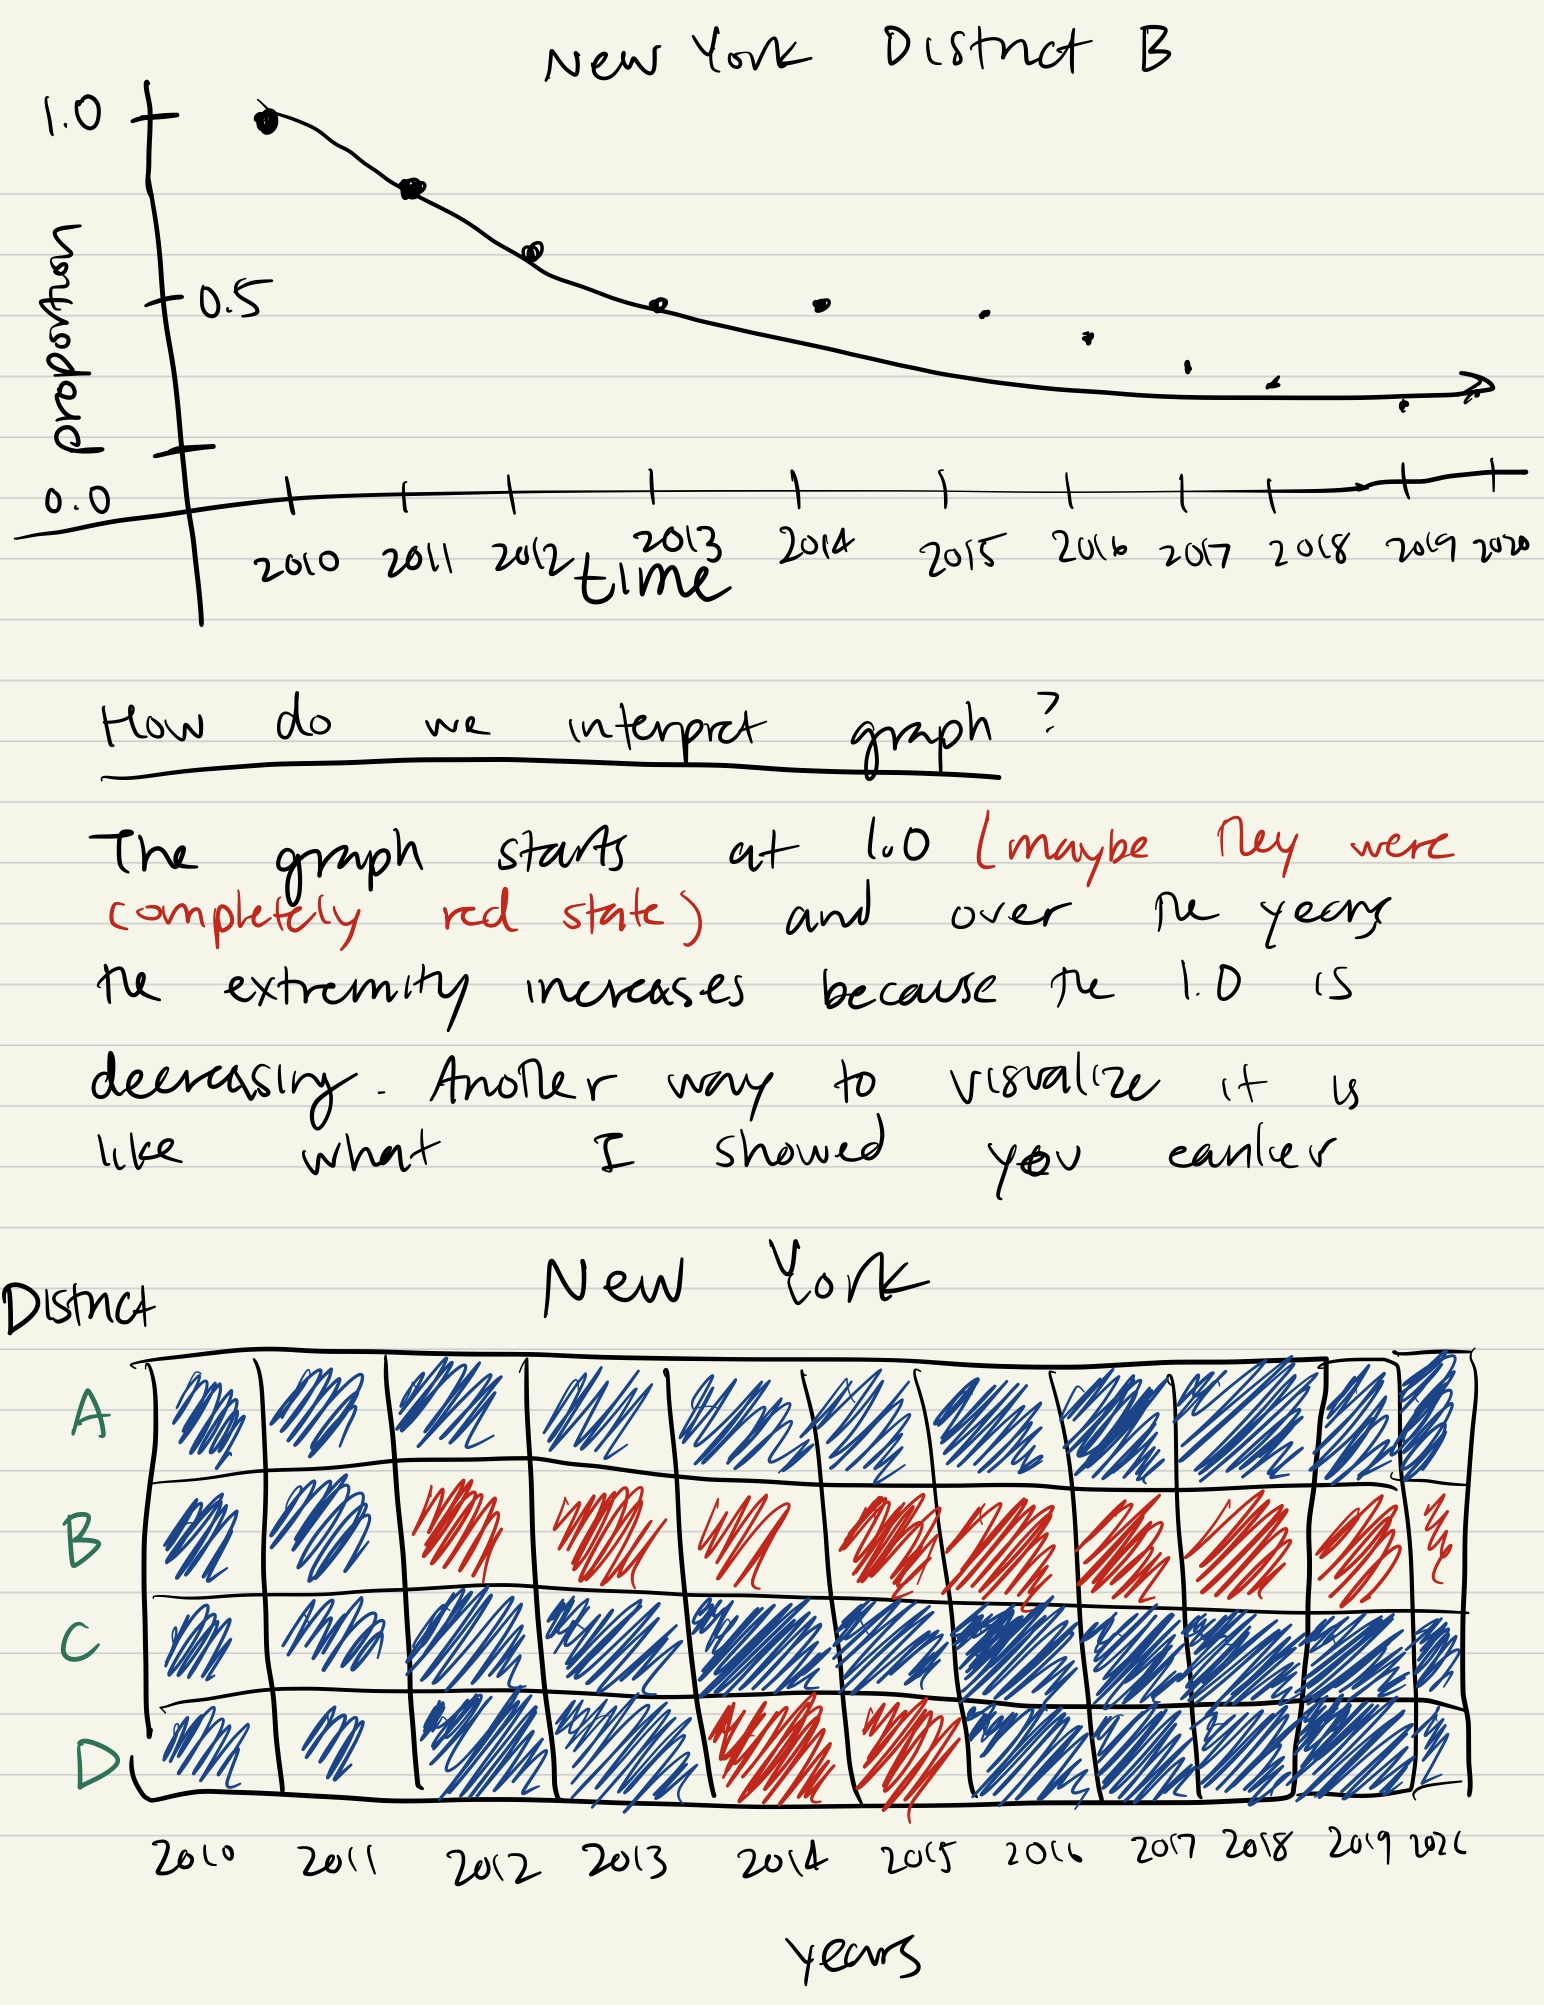 New York District B
1.0
0.5
proportion
0.0
2010 2011 2012 2013 2014 2015 2016 2017 2018 2019 2020
time
How do we interpret graph?
The graph starts at 1.0 (maybe they were
completely red state) and over the years
the extremity increases because the 1.0 is
decreasing. Another way to visualize it is
like what I showed you earlier
New York
District
A
B
C
D
2010 2011 2012 2013 2014 2015 2016 2017 2018 2019
years